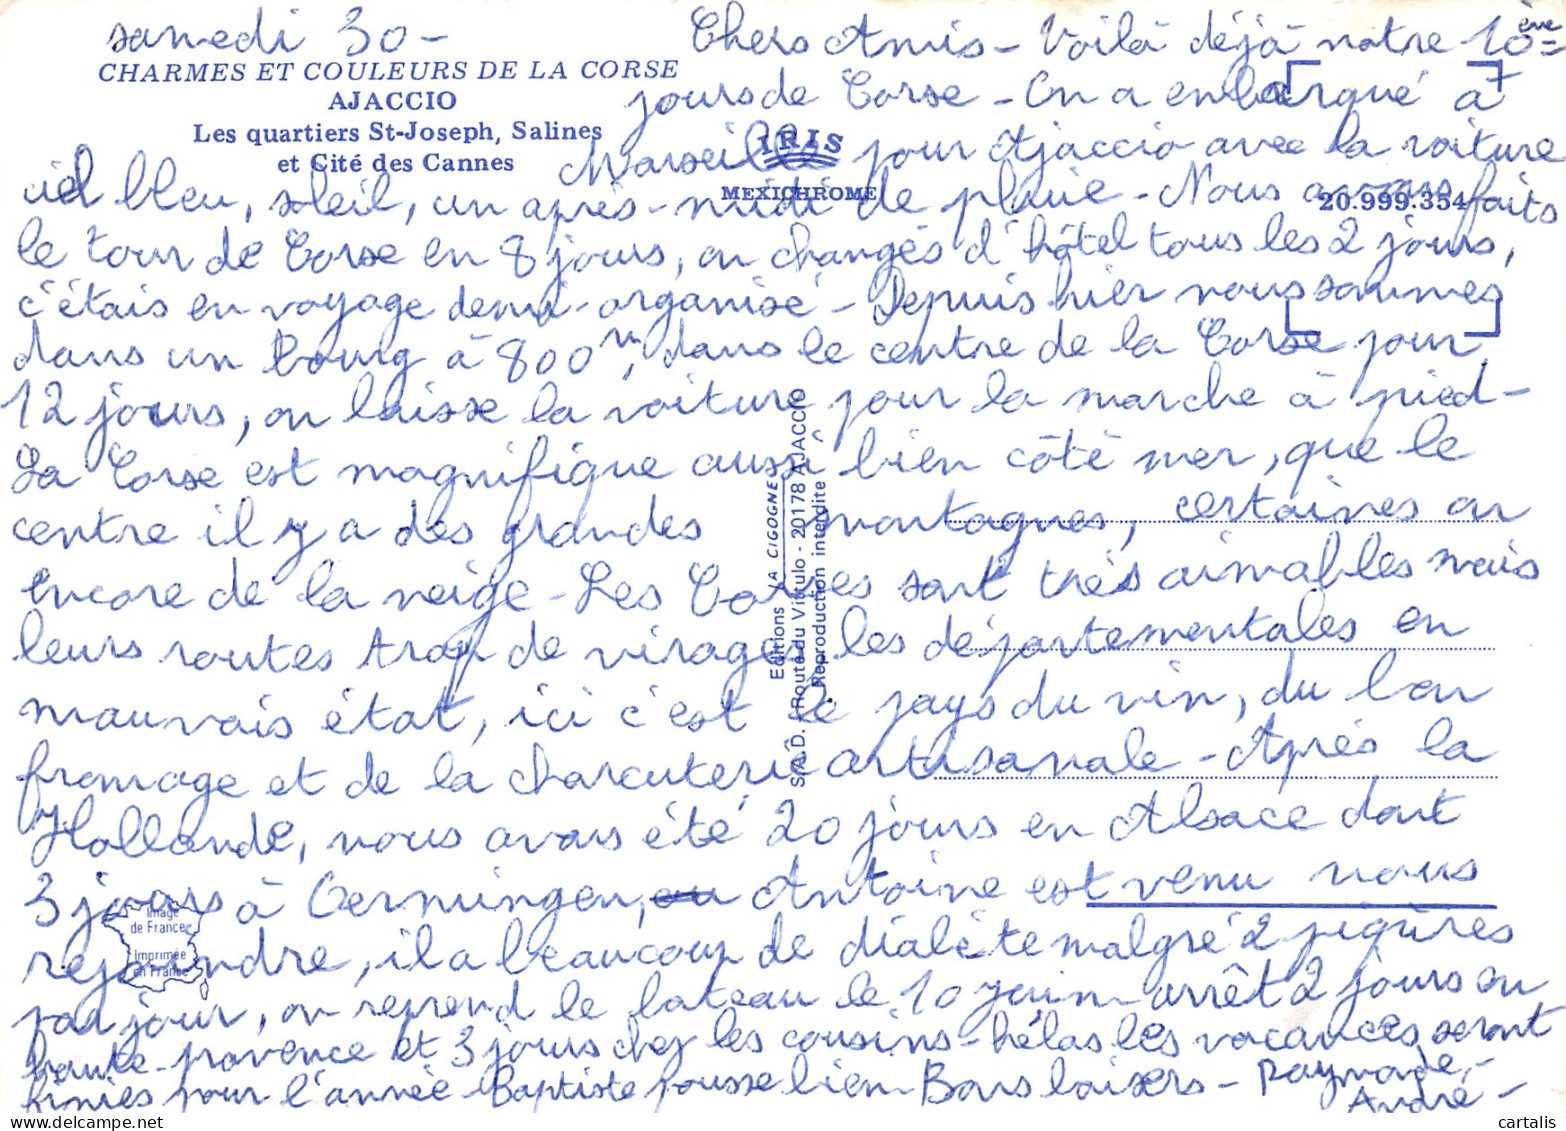 samedi 30 - Chers Amis - Voilà déjà notre 10ème
CHARMES ET COULEURS DE LA CORSE
AJACCIO
Les quartiers St-Joseph, Salines
et Cité des Cannes
IRIS
MEXICHROME
20.999.354
jours de Corse - On a embarqué à
Marseille pour Ajaccio avec la voiture
ciel bleu, soleil, un après-midi de pluie - Nous avons faits
le tour de Corse en 8 jours, on changés d'hôtel tous les 2 jours,
c'étais en voyage demi-organisé - Depuis hier nous sommes
dans un bourg à 800 m, dans le centre de la Corse pour
12 jours, on laisse la voiture pour la marche à pied -
La Corse est magnifique aussi bien côté mer, que le
centre il y a des grandes montagnes, certaines on
encore de la neige - Les Corses sont très aimables mais
leurs routes trop de virages les départementales en
mauvais état, ici c'est le pays du vin, du bon
fromage et de la charcuterie artisanale - Après la
Hollande, nous avons été 20 jours en Alsace dont
3 jours à Gernuingen, Antoine est venu nous
rejoindre, il a beaucoup de diabète malgré 2 piqûres
par jour, on reprend le bateau le 10 juin - arrêt 2 jours en
haute-provence et 3 jours chez les cousins - hélas les vacances seront
finies pour l'année Baptiste pousse bien - Bons baisers - Raymonde -
André -
Editions LA CIGOGNE
S.A.D. - Route du Vittulo - 20178 AJACCIO
Reproduction interdite
Image
de France
Imprimée
en France
cartalis